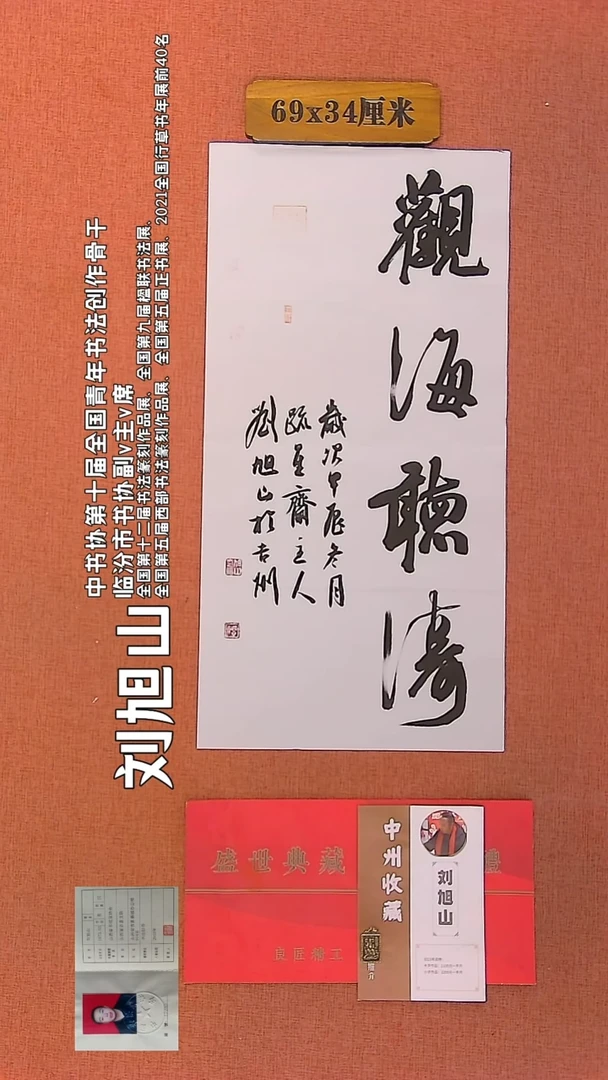 69x34厘米
觀海聽濤
歲次甲辰冬月
疏星齋主人
劉旭山於古州
中书协第十届全国青年书法创作骨干
临汾市书协副v主v席
全国第十二届书法篆刻作品展、全国第九届楹联书法展、
全国第五届西部书法篆刻作品展、全国第五届正书展、2021全国行草书年展前40名
刘旭山
盛世典藏
良匠精工
中州收藏
简介
刘旭山